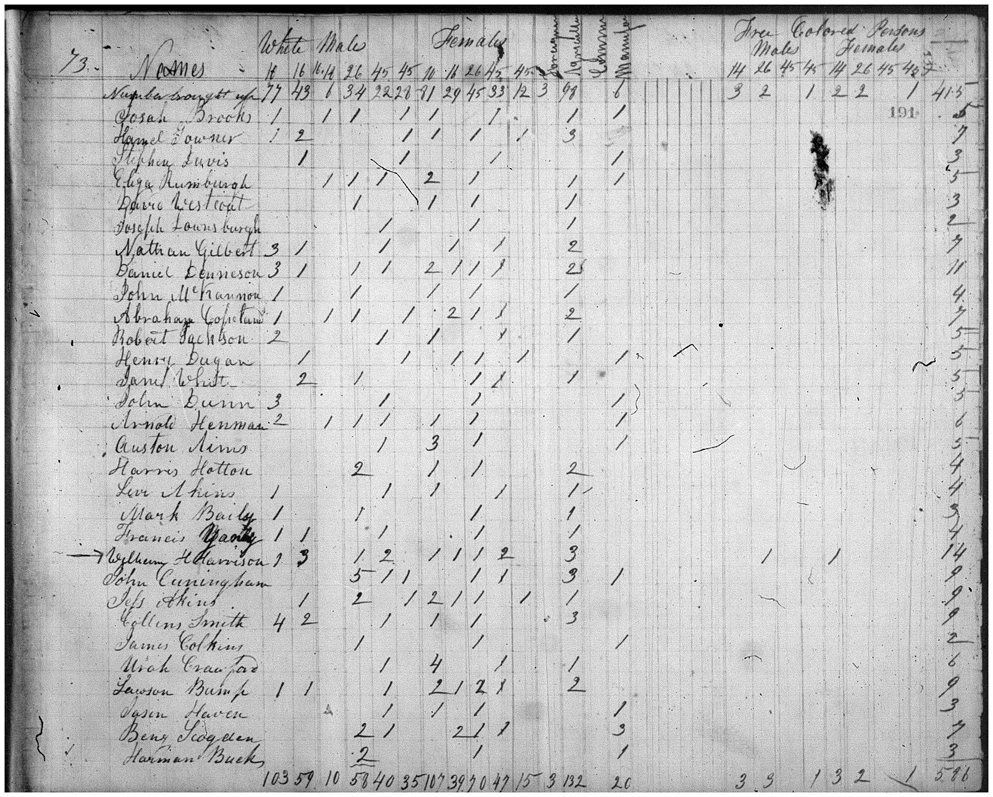 73.
White Males Females Free Colored Persons
Males Females
Names
16 16 26 45 45 10 16 26 45 45 14 26 45 45 14 26 45
Number brought up 77 43 6 34 22 28 81 29 45 33 12 3 98 6 3 2 1 2 2 1 415
191
Josah Brooks 1 1 1 1 1 1 1 1 5
Hamel Towner 1 2 1 1 1 1 3 7
Stephen Davis 1 1 1 1 3
Rumburgh 1 1 1 2 1 1 1 5
David Westcoat 1 1 1 1 3
Joseph Lounsburgh 1 1 1 2
Nathan Gilbert 3 1 1 1 1 2 7
Daniel Denneson 3 1 1 1 2 1 1 1 2 11
John McKannion 1 1 1 1 1 4
Abraham 1 1 1 1 2 1 1 2 7
Robert Jackson 2 1 1 1 1 5
Henry Dugan 1 1 1 1 1 1 5
White 2 1 1 1 1 5
John Dunn 3 1 1 1
Arnold Henman 2 1 1 1 1 1 1 6
Auston 1 3 1 1 5
Harris Hotton 2 1 1 2 4
Levi Akins 1 1 1 1 1 4
Mark Baily 1 1 1 1 3
Francis 1 1 1 1 1 4
William H Harrison 1 3 1 2 1 1 1 2 3 1 1 14
John Cuningham 5 1 1 1 1 3 1 9
Jess Akins 1 2 1 2 1 1 1 1 9
Collins Smith 4 2 1 1 1 3 9
James Colkins 1 1 1 2
Urah Crawford 1 4 1 1 6
Lawson Bump 1 1 1 2 1 2 1 2 9
Jason Haven 1 1 1 1 3
Benj Scogden 2 1 2 1 1 3 7
Harman Buck 2 1 1 3
103 59 10 58 40 35 107 39 70 47 15 3 132 20 3 3 1 3 2 1 586